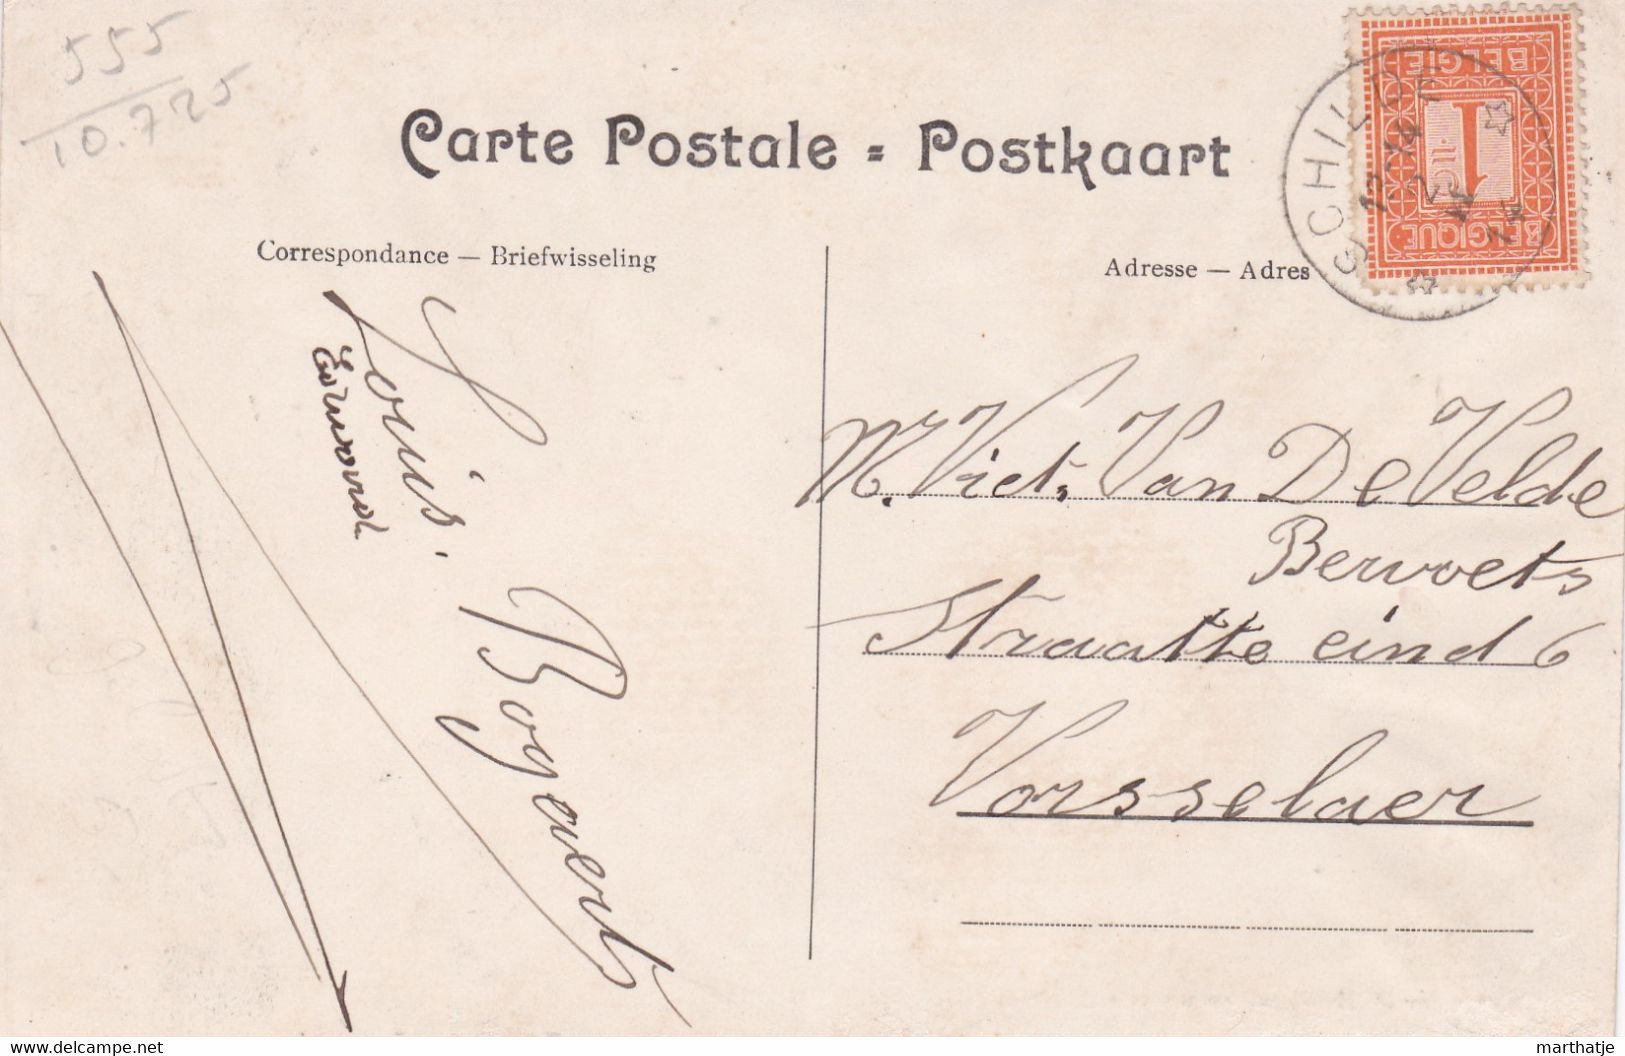 555
10.725
Carte Postale = Postkaart
Correspondance — Briefwisseling
Adresse — Adres
BELGIE
1
BELGIQUE
SCHILDE
12-14
2
Louis Bogaerts
Mr. Vict. Van De Velde
Bervoets
Straatte eind 6
Vorsselaer
www.delcampe.net
marthatje